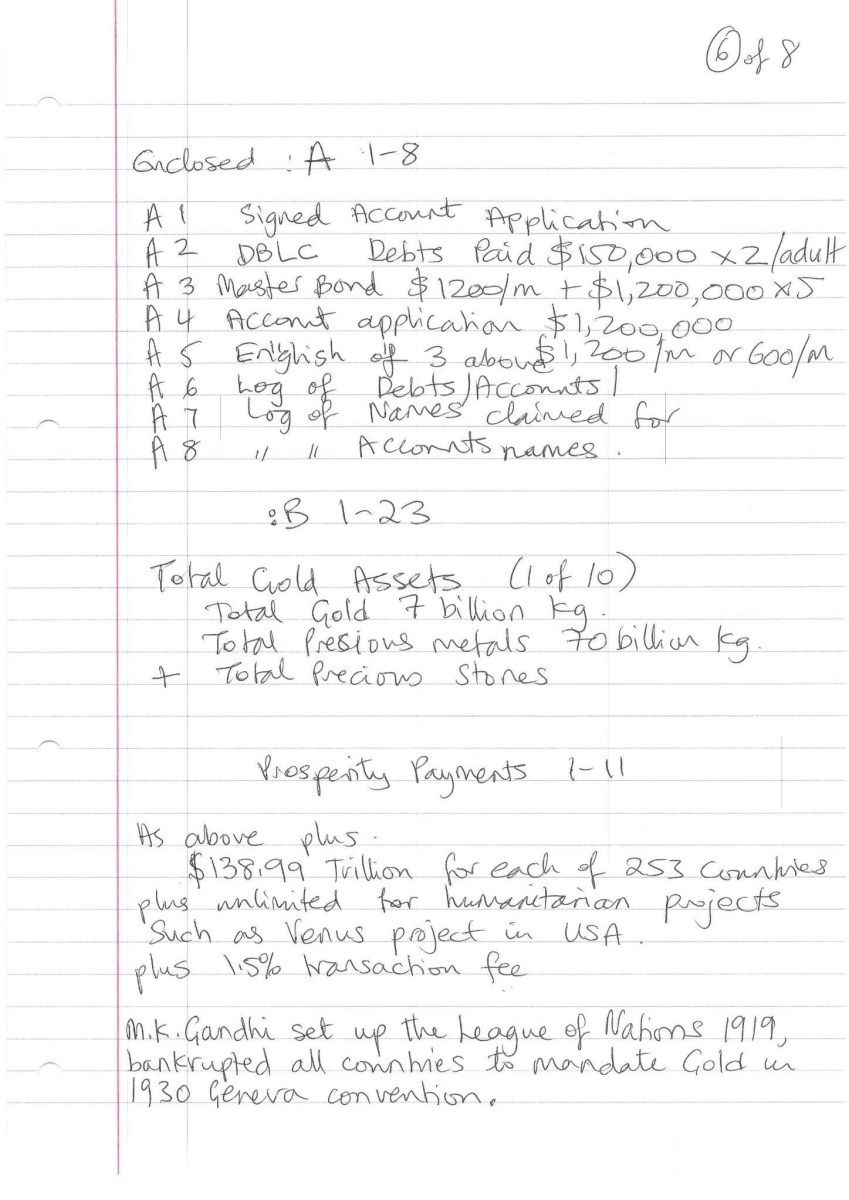 6 of 8
Enclosed : A 1-8
A 1 Signed Account Application
A 2 DBLC Debts Paid $150,000 x 2/adult
A 3 Master Bond $1200/m + $1,200,000 x 5
A 4 Account application $1,200,000
A 5 English of 3 above $1,200/m or 600/m
A 6 Log of Debts/Accounts
A 7 Log of Names claimed for
A 8 " " Accounts names.
:B 1-23
Total Gold Assets (1 of 10)
Total Gold 7 billion kg.
Total Presious metals 70 billion kg.
+ Total Precious Stones
Prosperity Payments 1-11
As above plus.
$138.99 Trillion for each of 253 Countries
plus unlimited for humanitarian projects
Such as Venus project in USA.
plus 1.5% transaction fee
M.K. Gandhi set up the League of Nations 1919,
bankrupted all countries to mandate Gold in
1930 Geneva convention.